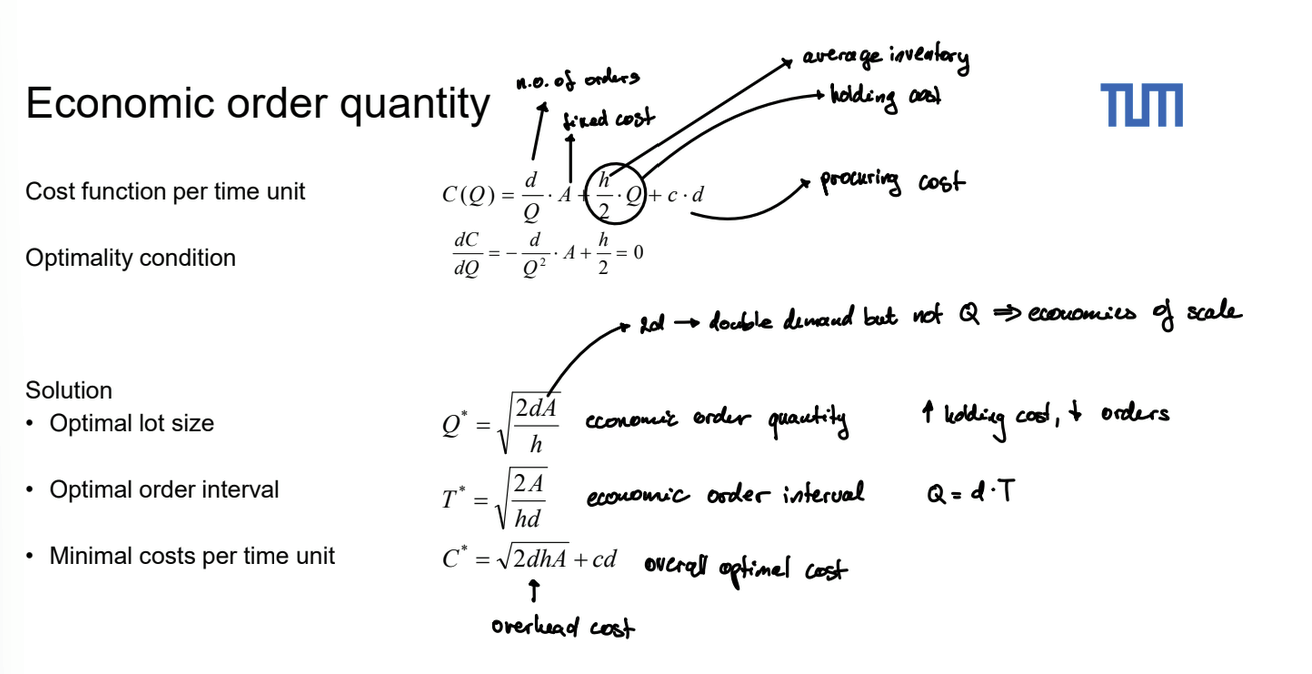 n.o. of orders
average inventory
Economic order quantity
fixed cost
holding cost
TUM
Cost function per time unit
C(Q) = d/Q · A + h/2 · Q + c · d
procuring cost
Optimality condition
dC/dQ = − d/Q² · A + h/2 = 0
2d → double demand but not Q ⇒ economies of scale
Solution
• Optimal lot size
Q* = √(2dA/h) economic order quantity
↑ holding cost, ↓ orders
• Optimal order interval
T* = √(2A/hd) economic order interval
Q = d·T
• Minimal costs per time unit
C* = √2dhA + cd overall optimal cost
↑
overhead cost